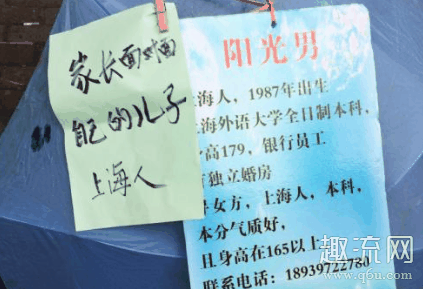 家长面对面
自己的儿子
上海人
阳光男
海人，1987年出生
海外语大学全日制本科，
高179，银行员工
独立婚房
女方，上海人，本科，
本分气质好，
且身高在165以上
联系电话：18939722780
趣流网
www.q6u.com